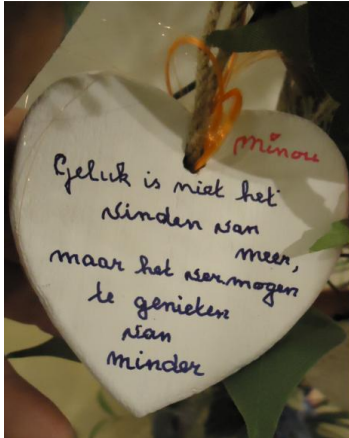 Minou
Geluk is niet het
vinden van
meer,
maar het vermogen
te genieten
van
minder